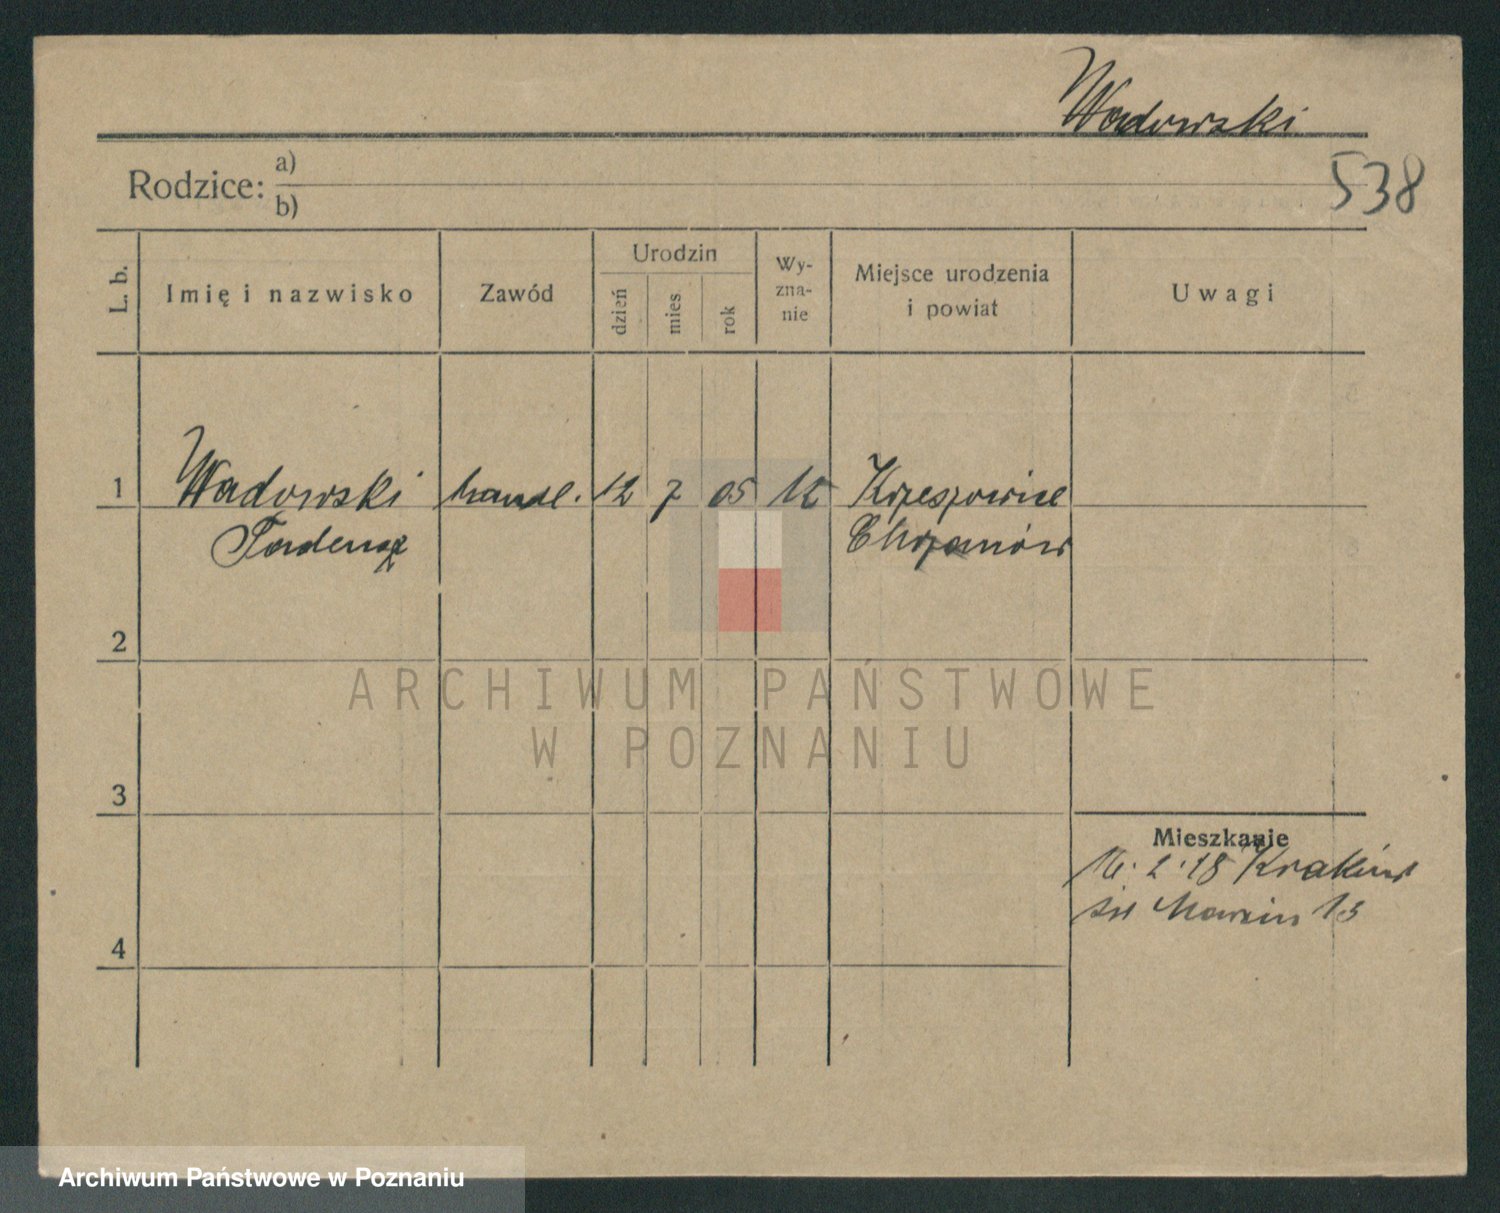 Wadowski
538
Rodzice: a)
b)
L. b.
Imię i nazwisko
Zawód
Urodzin
dzień
mies
rok
Wy-
zna-
nie
Miejsce urodzenia
i powiat
Uwagi
1 Wadowski handl. 12 7 05 Krzeszowice
Tadeusz Chrzanów
2
ARCHIWUM PAŃSTWOWE
W POZNANIU
3
Mieszkanie
2.18 Kraków
Marcin 13
4
Archiwum Państwowe w Poznaniu